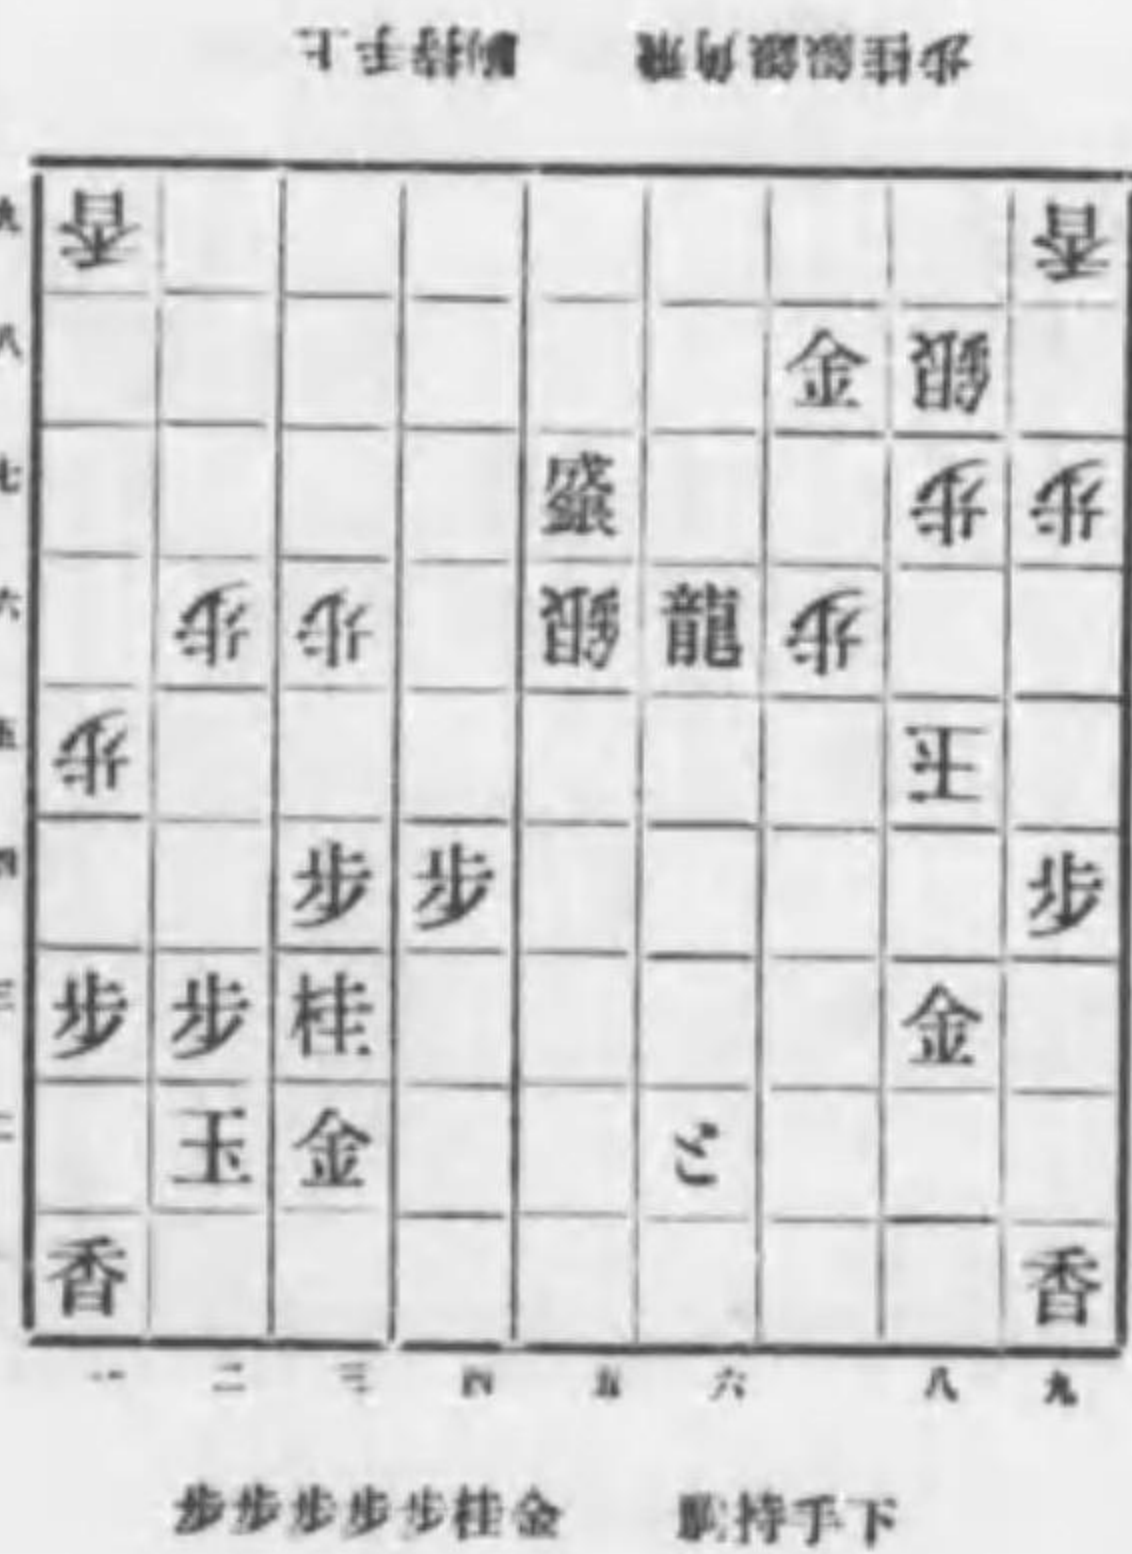 上手持駒 飛角銀銀桂歩
九 香 香
八 金 銀
七 歩 歩
六 歩 歩 銀 龍 歩
五 歩 王
四 歩 歩 歩
三 歩 歩 桂 金
二 玉 金 と
香 香
一 二 三 四 五 六 八 九
下手持駒 金桂歩歩歩歩歩